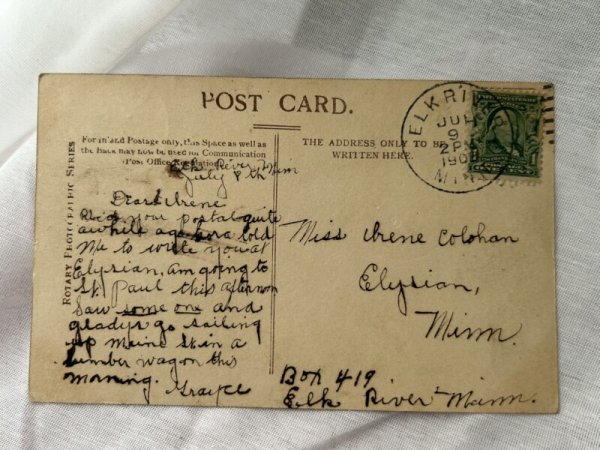 POST CARD.
For inland Postage only, this Space as well as
the Back may now be used for Communication
(Post Office Regulation)
THE ADDRESS ONLY TO BE
WRITTEN HERE.
ROTARY PHOTOGRAPHIC SERIES
ELK RIV
JUL
9
2 PM
MINN
Elk River Minn
July 8th
Dear Irene
Rec'd your postal quite
awhile ago told
me to write you at
Elysian, am going to
St. Paul this afternoon
Saw some one and
gladys go sailing
up Maine St in a
lumber wagon this
morning.
Grayce
Miss Irene Colohan
Elysian,
Minn.
Box 419
Elk River Minn.